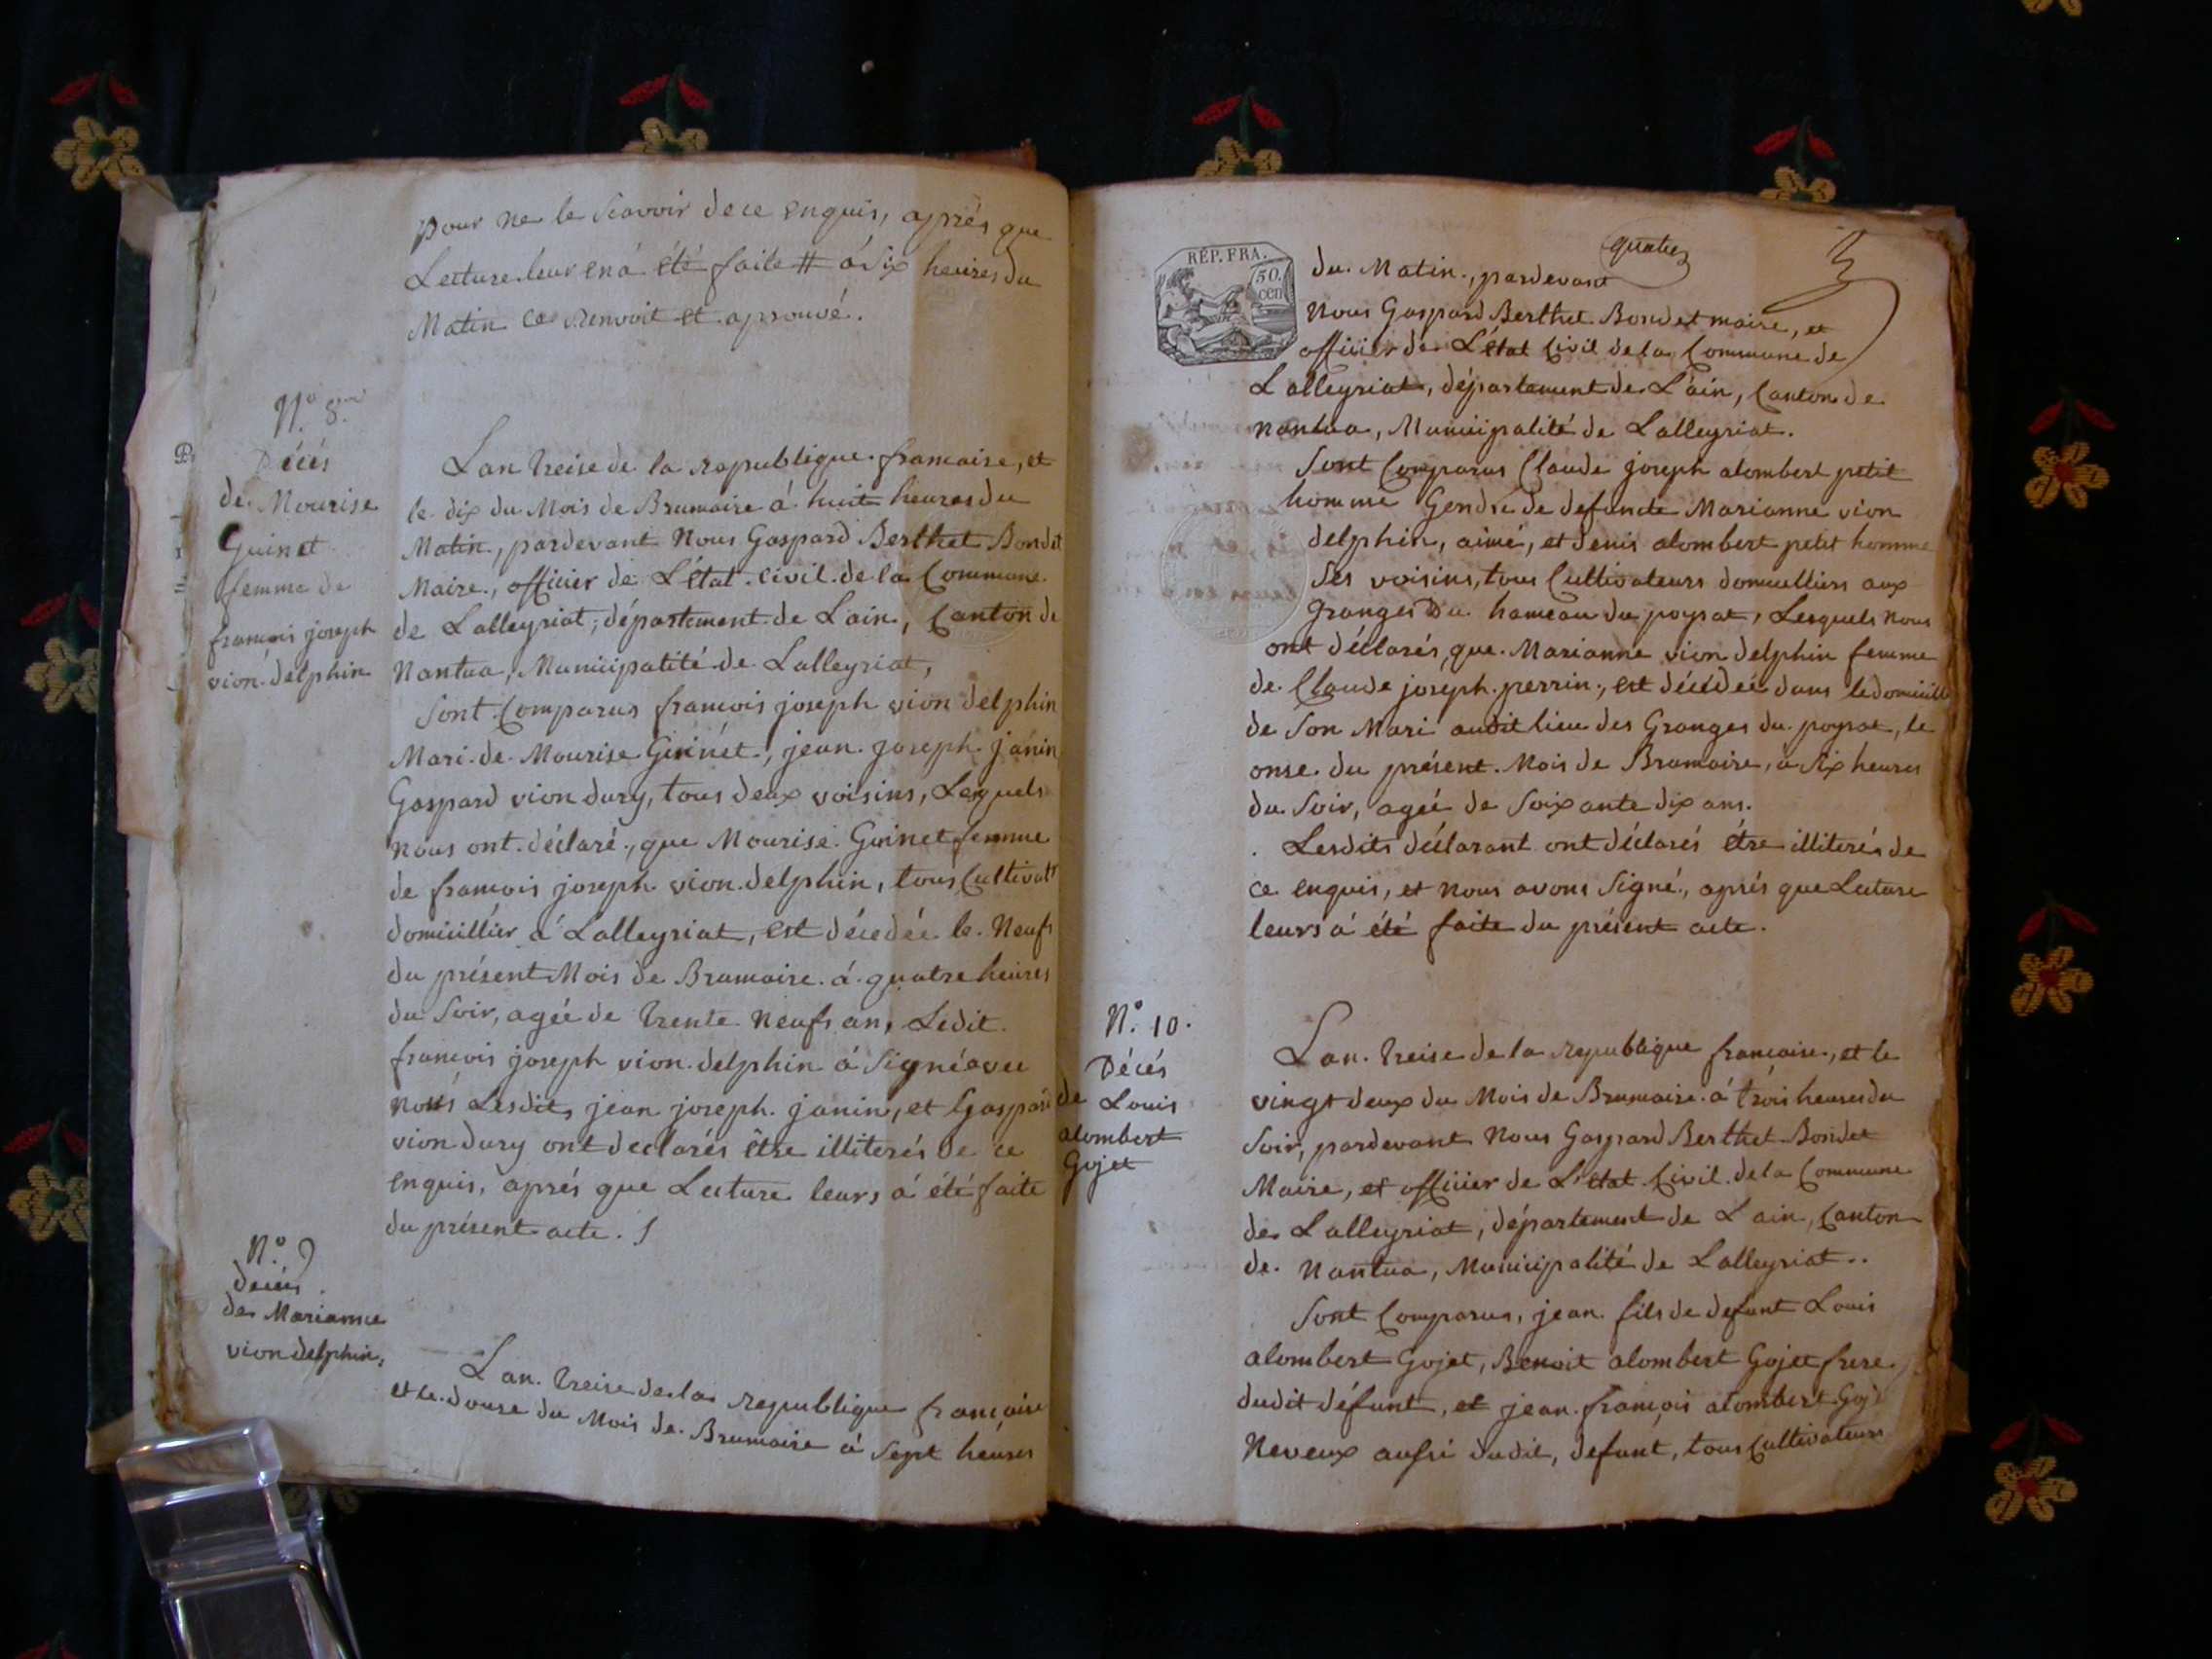 pour ne le Scavoir de ce enquis, aprés que
Lecture leur en á été faite # á Six heures du
Matin ce Renvoit et aprouvé.
N.º 8.
Décés
de Mourise
Guinet
femme de
francois joseph
vion delphin
Lan treise de la republique francaise, et
le dix du Mois de Brumaire á huit heures du
Matin, pardevant Nous Gaspard Berthet Bondet
Maire, officier de L'état civil de la Commune
de Lalleyriat, département de Lain, Canton de
Nantua, Municipalité de Lalleyriat,
Sont Comparus francois joseph vion delphin
Mari de Mourise Guinét, jean joseph janin
Gaspard vion dury, tous deux voisins, Lesquels
nous ont déclaré, que Mourise Guinet femme
de francois joseph vion delphin, tous Cultivatr
domicillier á Lalleyriat, est décedée le Neufs
du présent Mois de Brumaire á quatre heures
du Soir, ageé de trente Neufs ans, Ledit
francois joseph vion delphin á Signé avec
nous Lesdits jean joseph janin, et Gaspard
vion dury ont declarés être illiterés de ce
enquis, aprés que Lecture leurs á été faite
du présent acte.
N.º 9
decés
de Marianne
vion delphin,
Lan treise de la republique francaise
et le douse du Mois de Brumaire á Sept heures
quatre
RÉP. FRA.
50.
cen
du Matin, pardevant
Nous Gaspard Berthet Bondet maire, et
officier de L'état Civil de la Commune de
Lalleyriat, département de L'ain, Canton de
Nantua, Municipalité de Lalleyriat.
Sont Comparus Claude joseph alombert petit
homme Gendre de defunde Marianne vion
delphin, aimé, et denis alombert petit homme
Ses voisins, tous Cultivateurs domicilliers aux
Granges du hameau du poysat, Lesquels nous
ont déclarés, que Marianne vion delphin femme
de Claude joseph perrin, est décédeé dans le domicille
de Son Mari audit lieu des Granges du poysat, le
onse du présent Mois de Brumaire, á Six heures
du Soir, ageé de Soixante dix ans.
Lesdits déclarant ont déclarés étre illiterés de
ce enquis, et nous avons Signé, aprés que Lecture
leurs á été faite du présent acte.
N.º 10.
Décés
de Louis
alombert
Gojet
Lan treise de la republique francaise, et le
vingt deux du Mois de Brumaire á trois heures du
Soir, pardevant Nous Gaspard Berthet Bondet
Maire, et officier de L'état Civil de la Commune
de Lalleyriat, département de Lain, Canton
de Nantua, Municipalité de Lalleyriat..
Sont Comparus, jean fils de defunt Louis
alombert Gojet, Benoit alombert Gojet frere
dudit défunt, et jean francois alombert Goje
Neveux aussi dudit, defunt, tous Cultivateurs